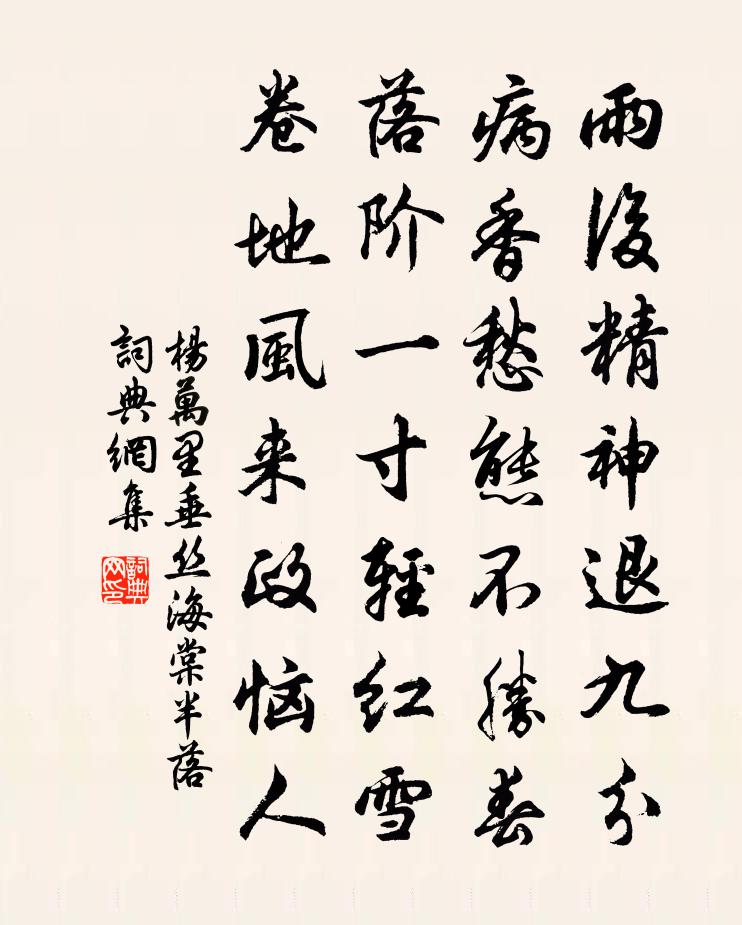 雨後精神退九分
病香愁態不勝春
落阶一寸輕红雪
卷地風来政恼人
楊萬里垂丝海棠半落
詞典網集
詞典网印